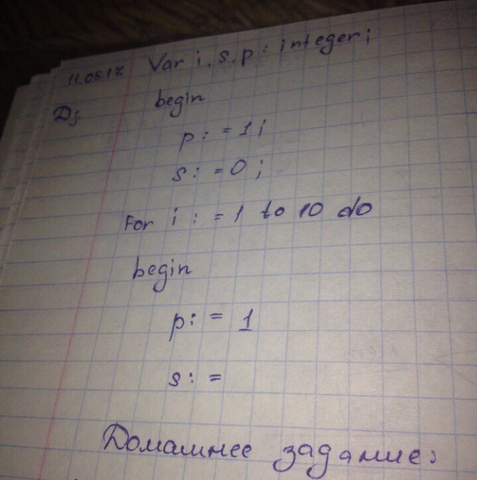 11.05.17 Var i, s, p : integer;
Дз begin
p: = 1;
s: = 0;
For i : = 1 to 10 do
begin
p: = 1
s: =
Домашнее задание: